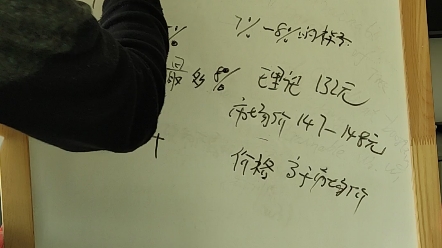 % 7%-8%的样子
多8% 理论132元
市场价147-148元
价格 高于市场价